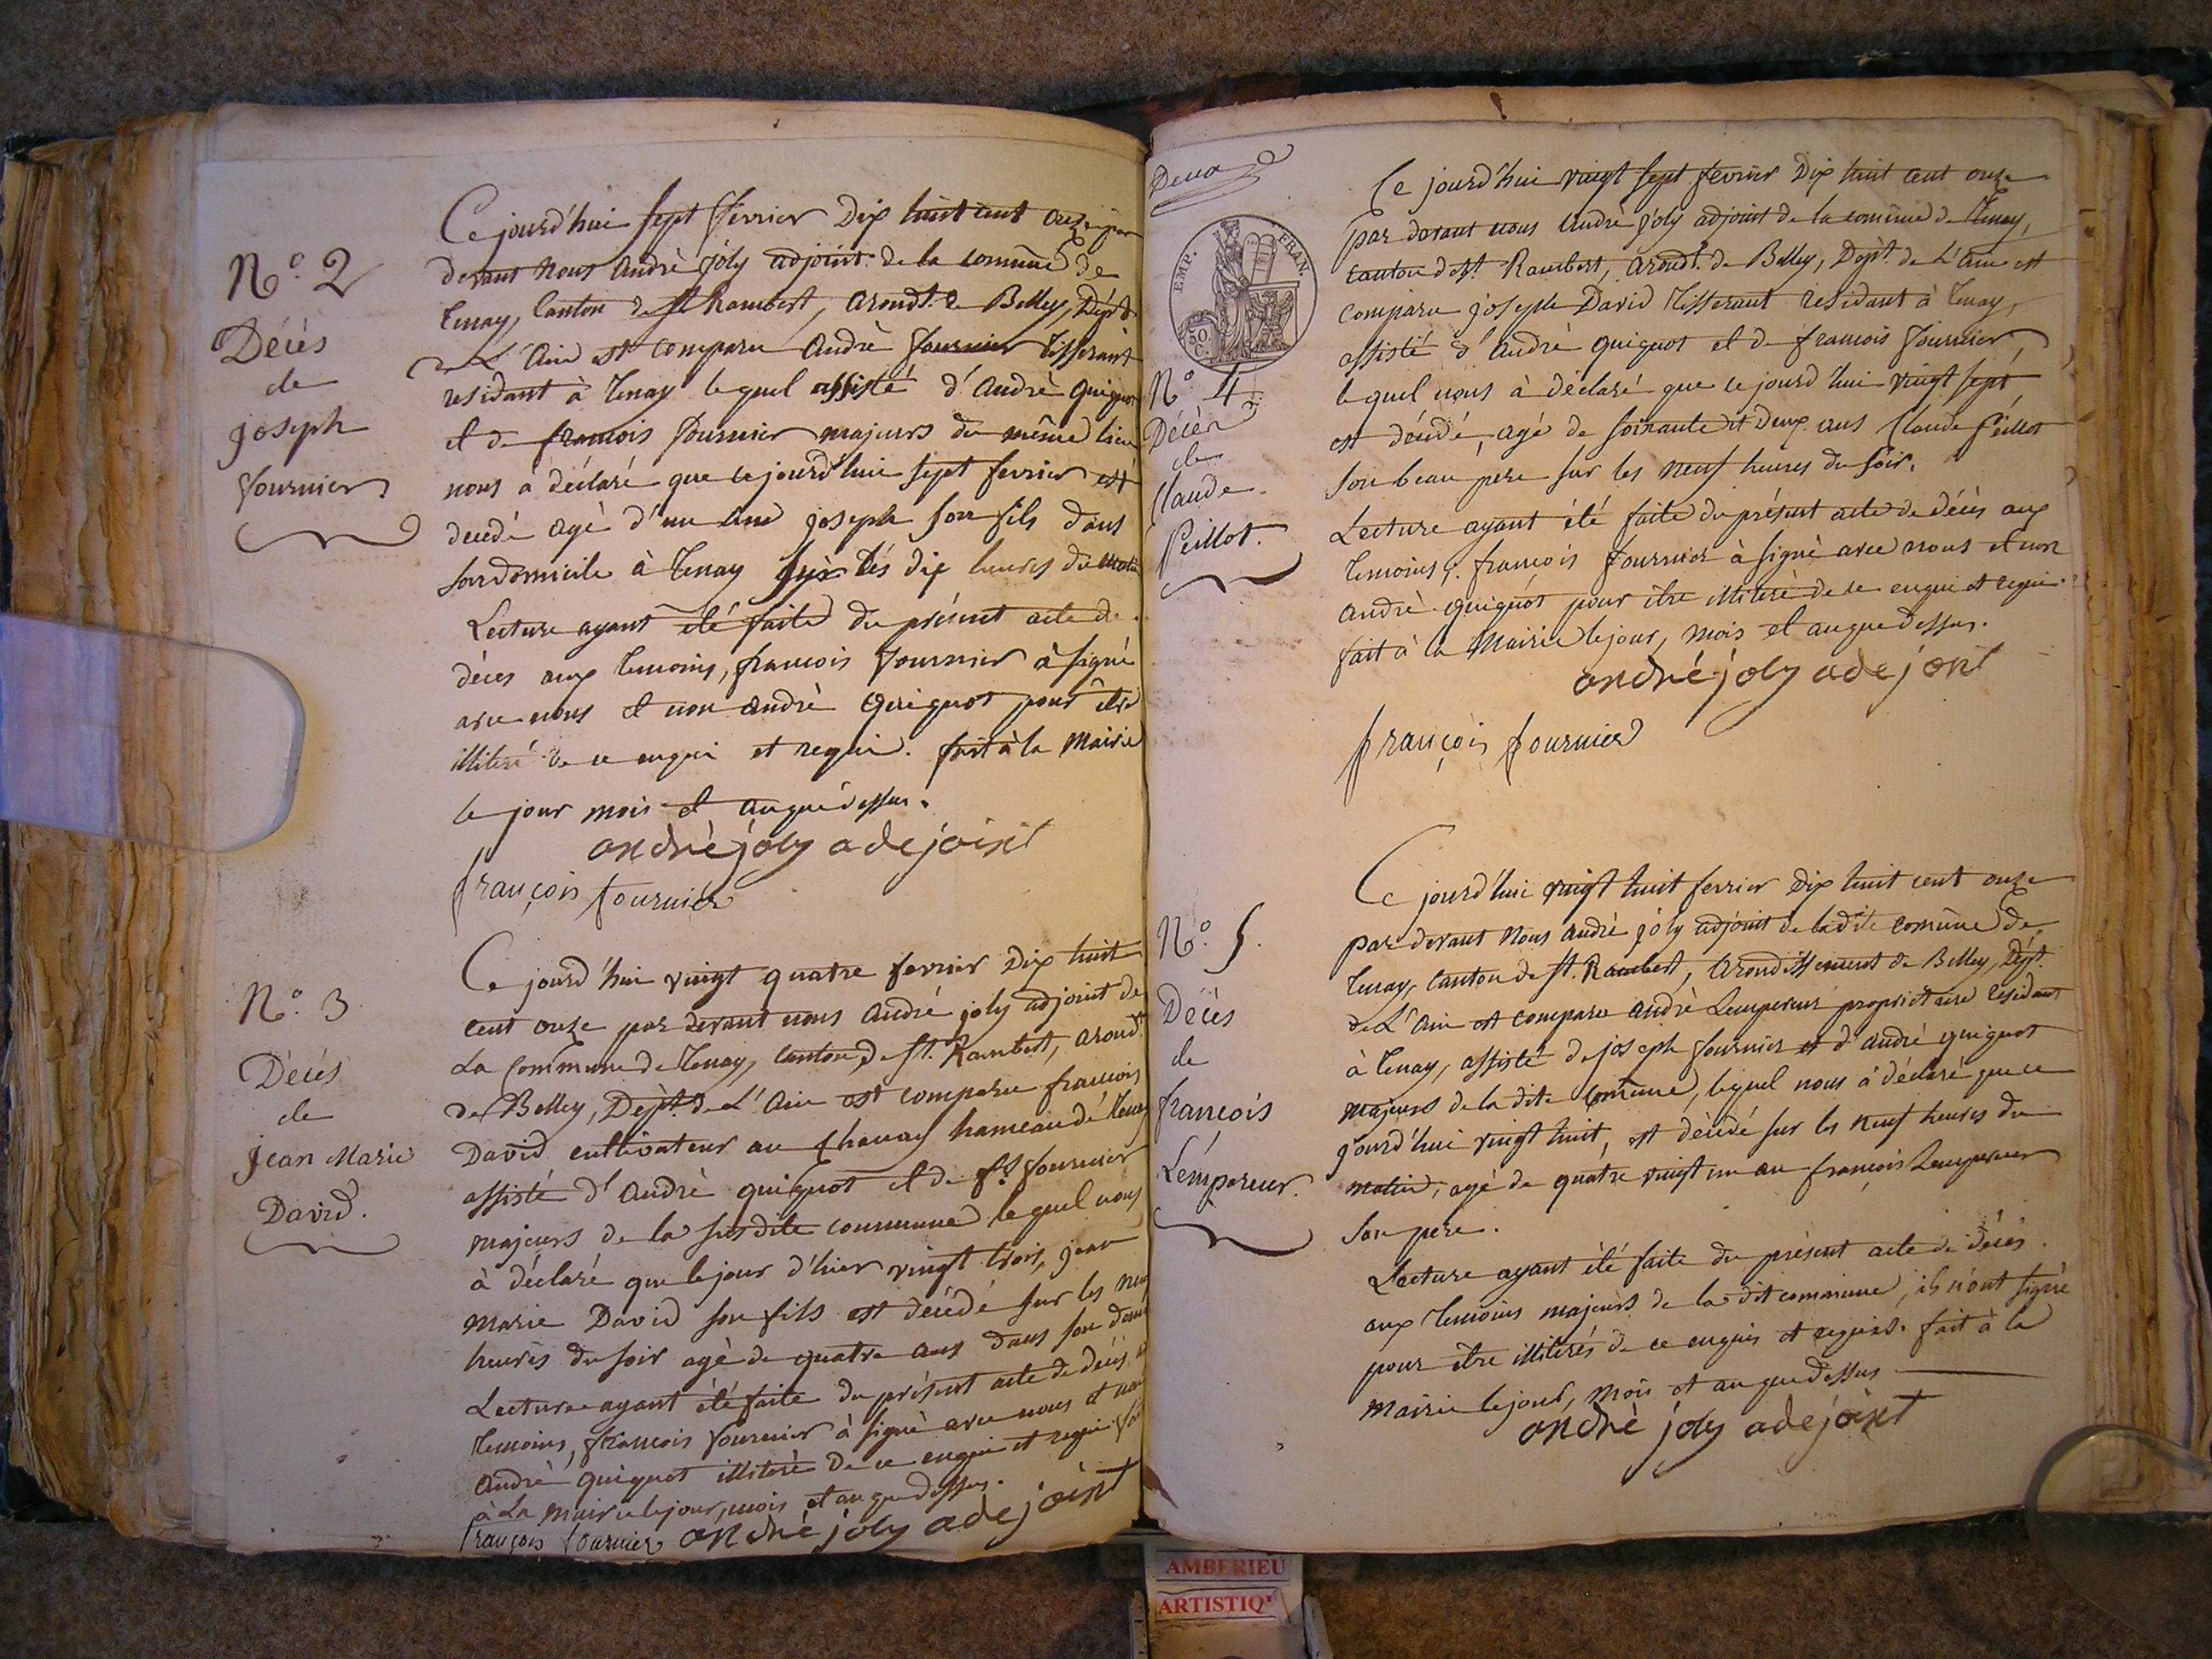 N.° 2
Décès
de
joseph
fournier
Ce jourd'hui sept fevrier dix huit cent onze par
devant nous andrè joly adjoint de la comune de
tenay, canton de st Rambert, arondt. de Belley, Dépt
de L'ain est comparu andrè fournier tisserant
residant à tenay lequel assisté d'andrè quiquot
et de francois fournier majeurs du même lieu
nous a déclaré que cejourd'hui sept fevrier est
decedé agé d'un une joseph son fils dans
son domicile à tenay les dix heures du matin
Lecture ayant été faite du présent acte de
décès aux temoins, francois fournier à signé
avec nous et non andrè quiquot pour être
illiteré de ce enqui et requi. fait à la mairie
le jour mois et anquedessus.
andrè joly adejoint
françois fournier
N.° 3
Décès
de
jean Marie
David.
Ce jourd'hui vingt quatre fevrier dix huit
cent onze par devant nous andré joly adjoint de
La Commune de tenay, canton de st. Rambert, arondt
de Belley, Dépt. de L'ain est comparu francois
David cultivateur au Chanay hameau de tenay
assisté d'andrè quiquot et de fs fournier
majeurs de la susdite commune lequel nous
à déclaré que lejour d'hier vingt trois, jean
marie David son fils est décédé sur les neuf
heures du soir agé de quatre ans dans son dom
Lecture ayant été faite du présent acte de décès
temoins, francois fournier à signé avec nous et non
andrè quiquot illiteré de ce enqui et requi
à La mairie lejour, mois et anquedessus.
françois fournier andrè joly adejoint
Deux
EMP. FRAN.
50 C.
N.° 4.
Décès
de
Claude
Peillot.
Ce jourd'hui vingt sept fevrier dix huit cent onze
par devant nous andrè joly adjoint de la comune de tenay,
canton de st. Rambert, arondt. de Belley, Dépt. de L'ain est
comparu joseph David tisserant residant à tenay,
assisté d'andrè quiquot et de francois fournier,
lequel nous à déclaré que cejourd'hui vingt sept
est décédé, agé de soixante et deux ans Claude Peillot
son beau pere sur les neuf heures du soir.
Lecture ayant été faite du présent acte de décès aux
temoins, francois fournier à signé avec nous et non
andrè quiquot pour être illiteré de ce enqui et requi.
fait à la Mairie lejour, mois et anquedessus.
andrè joly adejont
françois fournier
N.° 5.
Décès
de
francois
Lémpereur.
Ce jourd'hui vingt huit fevrier dix huit cent onze
par devant nous andrè joly adjoint de ladite comune de
tenay, canton de st. Rambert, arondissement de Belley, Dépt.
de L'ain est comparu andrè Lempereur proprietaire residant
à tenay, assisté de joseph fournier et d'andrè quiquot
majeurs de la dite comune, lequel nous à déclaré que ce
jourd'hui vingt huit, est décédé sur les neuf heures du
matin, agé de quatre vingt un an françois Lempereur
son pere.
Lecture ayant été faite du présent acte de décès
aux temoins majeurs de la dit commune, ils n'ont signé
pour être illiterés de ce enquis et requis. fait à la
mairie lejour, mois et anquedessus
andrè joly adejoint
AMBERIEU
ARTISTIQ'